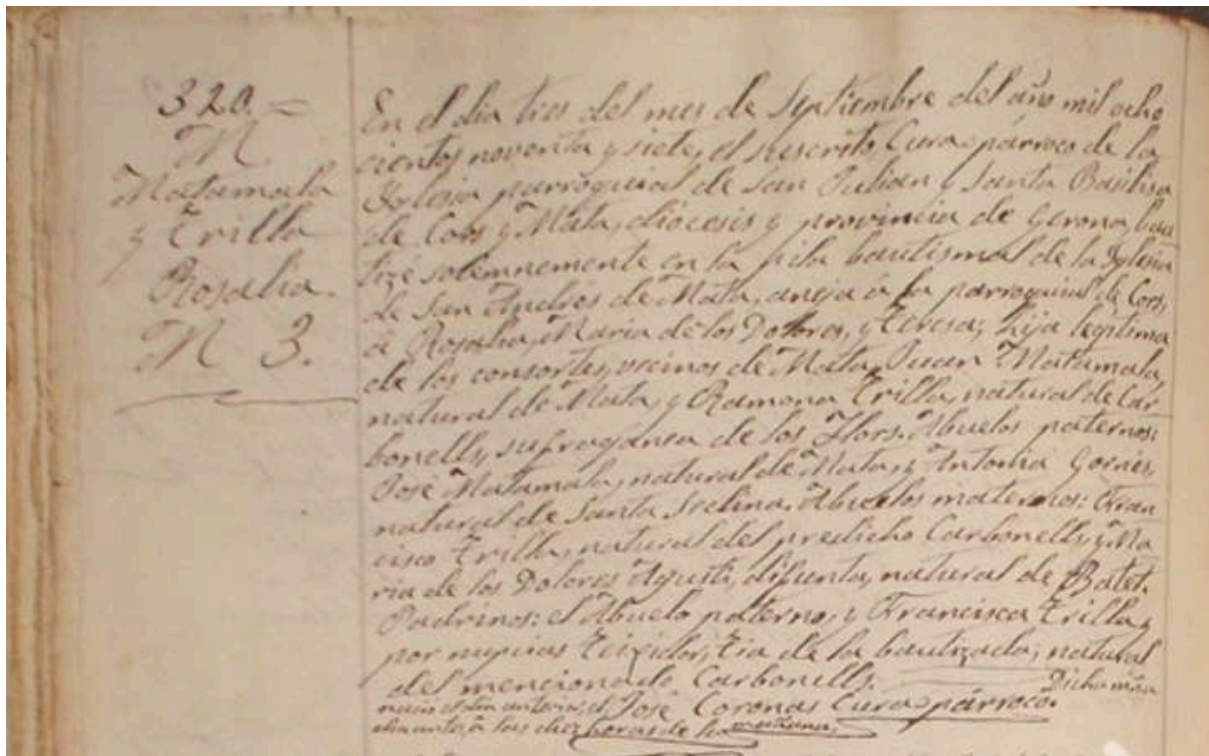 320. =
M
Matamala
y Trilla
Rosalia.
N 3.
En el dia tres del mes de Septiembre del año mil ocho
cientos noventa y siete, el suscrito, Cura-párroco de la
Iglesia parroquial de San Julian y Santa Basilisa
de Cors y Mata, diocesis y provincia de Gerona, bau
tizé solemnemente en la pila bautismal de la Iglesia
de San Andrés de Mata, aneja á la parroquial de Cors,
á Rosalia, Maria de los Dolores, y Teresa; hija legítima
de los consortes, vecinos de Mata, Juan Matamala,
natural de Mata, y Ramona Trilla, natural de Car
bonells, sufragánea de los Hors. Abuelos paternos:
José Matamala, natural de Mata, y Antonia
natural de Santa Abuelos maternos: Fran
cisco Trilla, natural del predicho Carbonells, y Ma
ria de los Dolores Agustí, difunta, natural de Batet.
Padrinos: el Abuelo paterno, y Francisca Trilla,
por nupcias Teixidor, tia de la bautizada; natural
del mencionado Carbonells. Dicha niña
nació el dia anterior, José Coronas Cura-párroco.
á las diez horas de la mañana.